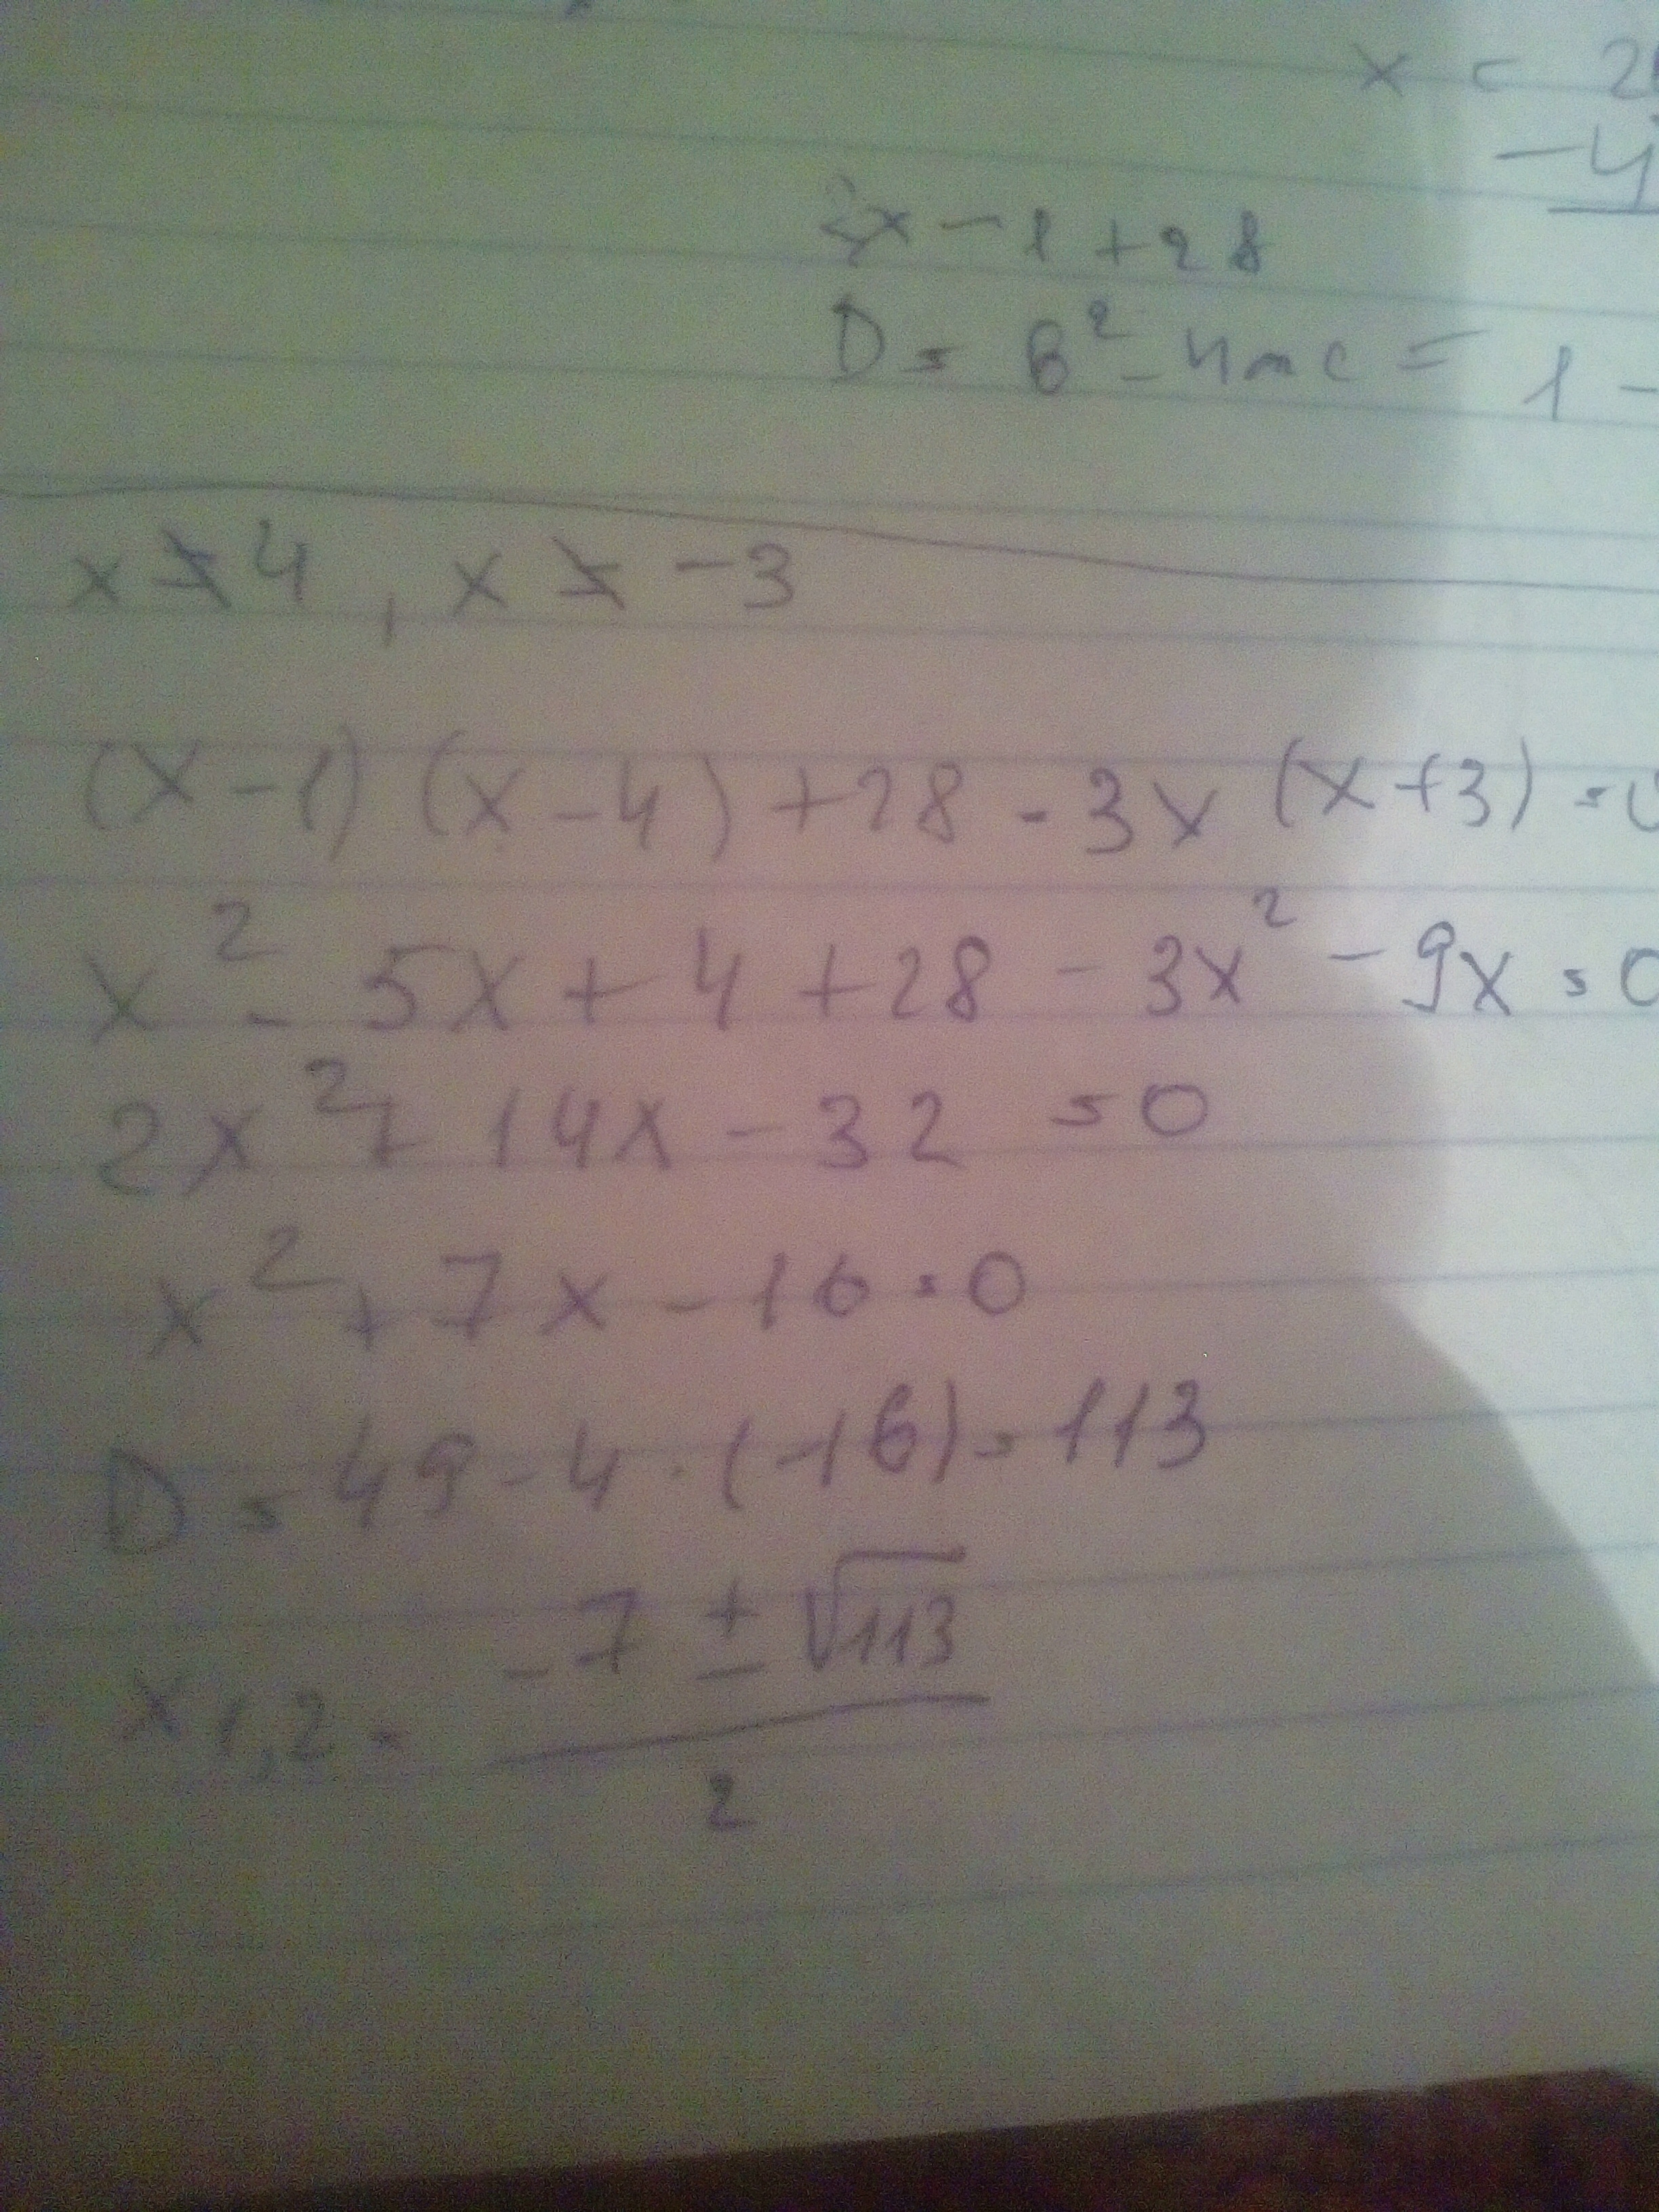 x < 2
-4
x - 1 + 28
D = B² - 4ac = 1 -
x ≠ 4 , x ≠ -3
(x - 1) (x - 4) + 28 - 3x (x + 3) = 0
x² - 5x + 4 + 28 - 3x² - 9x = 0
2x² + 14x - 32 = 0
x² + 7x - 16 = 0
D = 49 - 4 · (-16) = 113
x 1,2 = (-7 ± √113) / 2